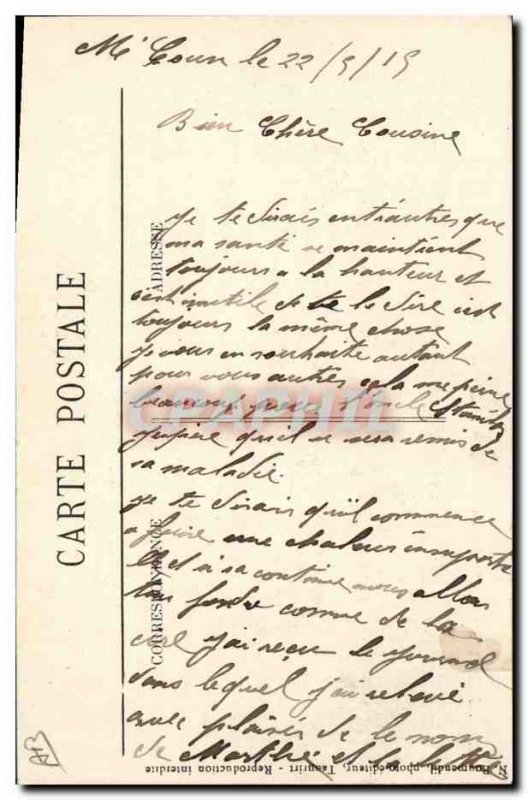 Mr Coun le 22/5/15
Bien Chère Cousine
je te dirais entrautres que
ma santé se maintient
toujours a la hauteur et
c'est inutile de te le dire c'est
toujours la même chose
je vous en souhaite autant
pour vous autres cela me peine
beaucoup pour l'oncle
j'espère qu'il se sera remis de
sa maladie.
je te dirais qu'il commence
a faire une chaleur
et si sa continue nous allons
tous fondre comme de la
j'ai reçu le journal
dans lequel j'ai relevé
avec plaisir de le nom
de Marthe et
CARTE POSTALE
ADRESSE
CORRESPONDANCE
photo-éditeur, Taourirt - Reproduction interdite
CPAPHIL